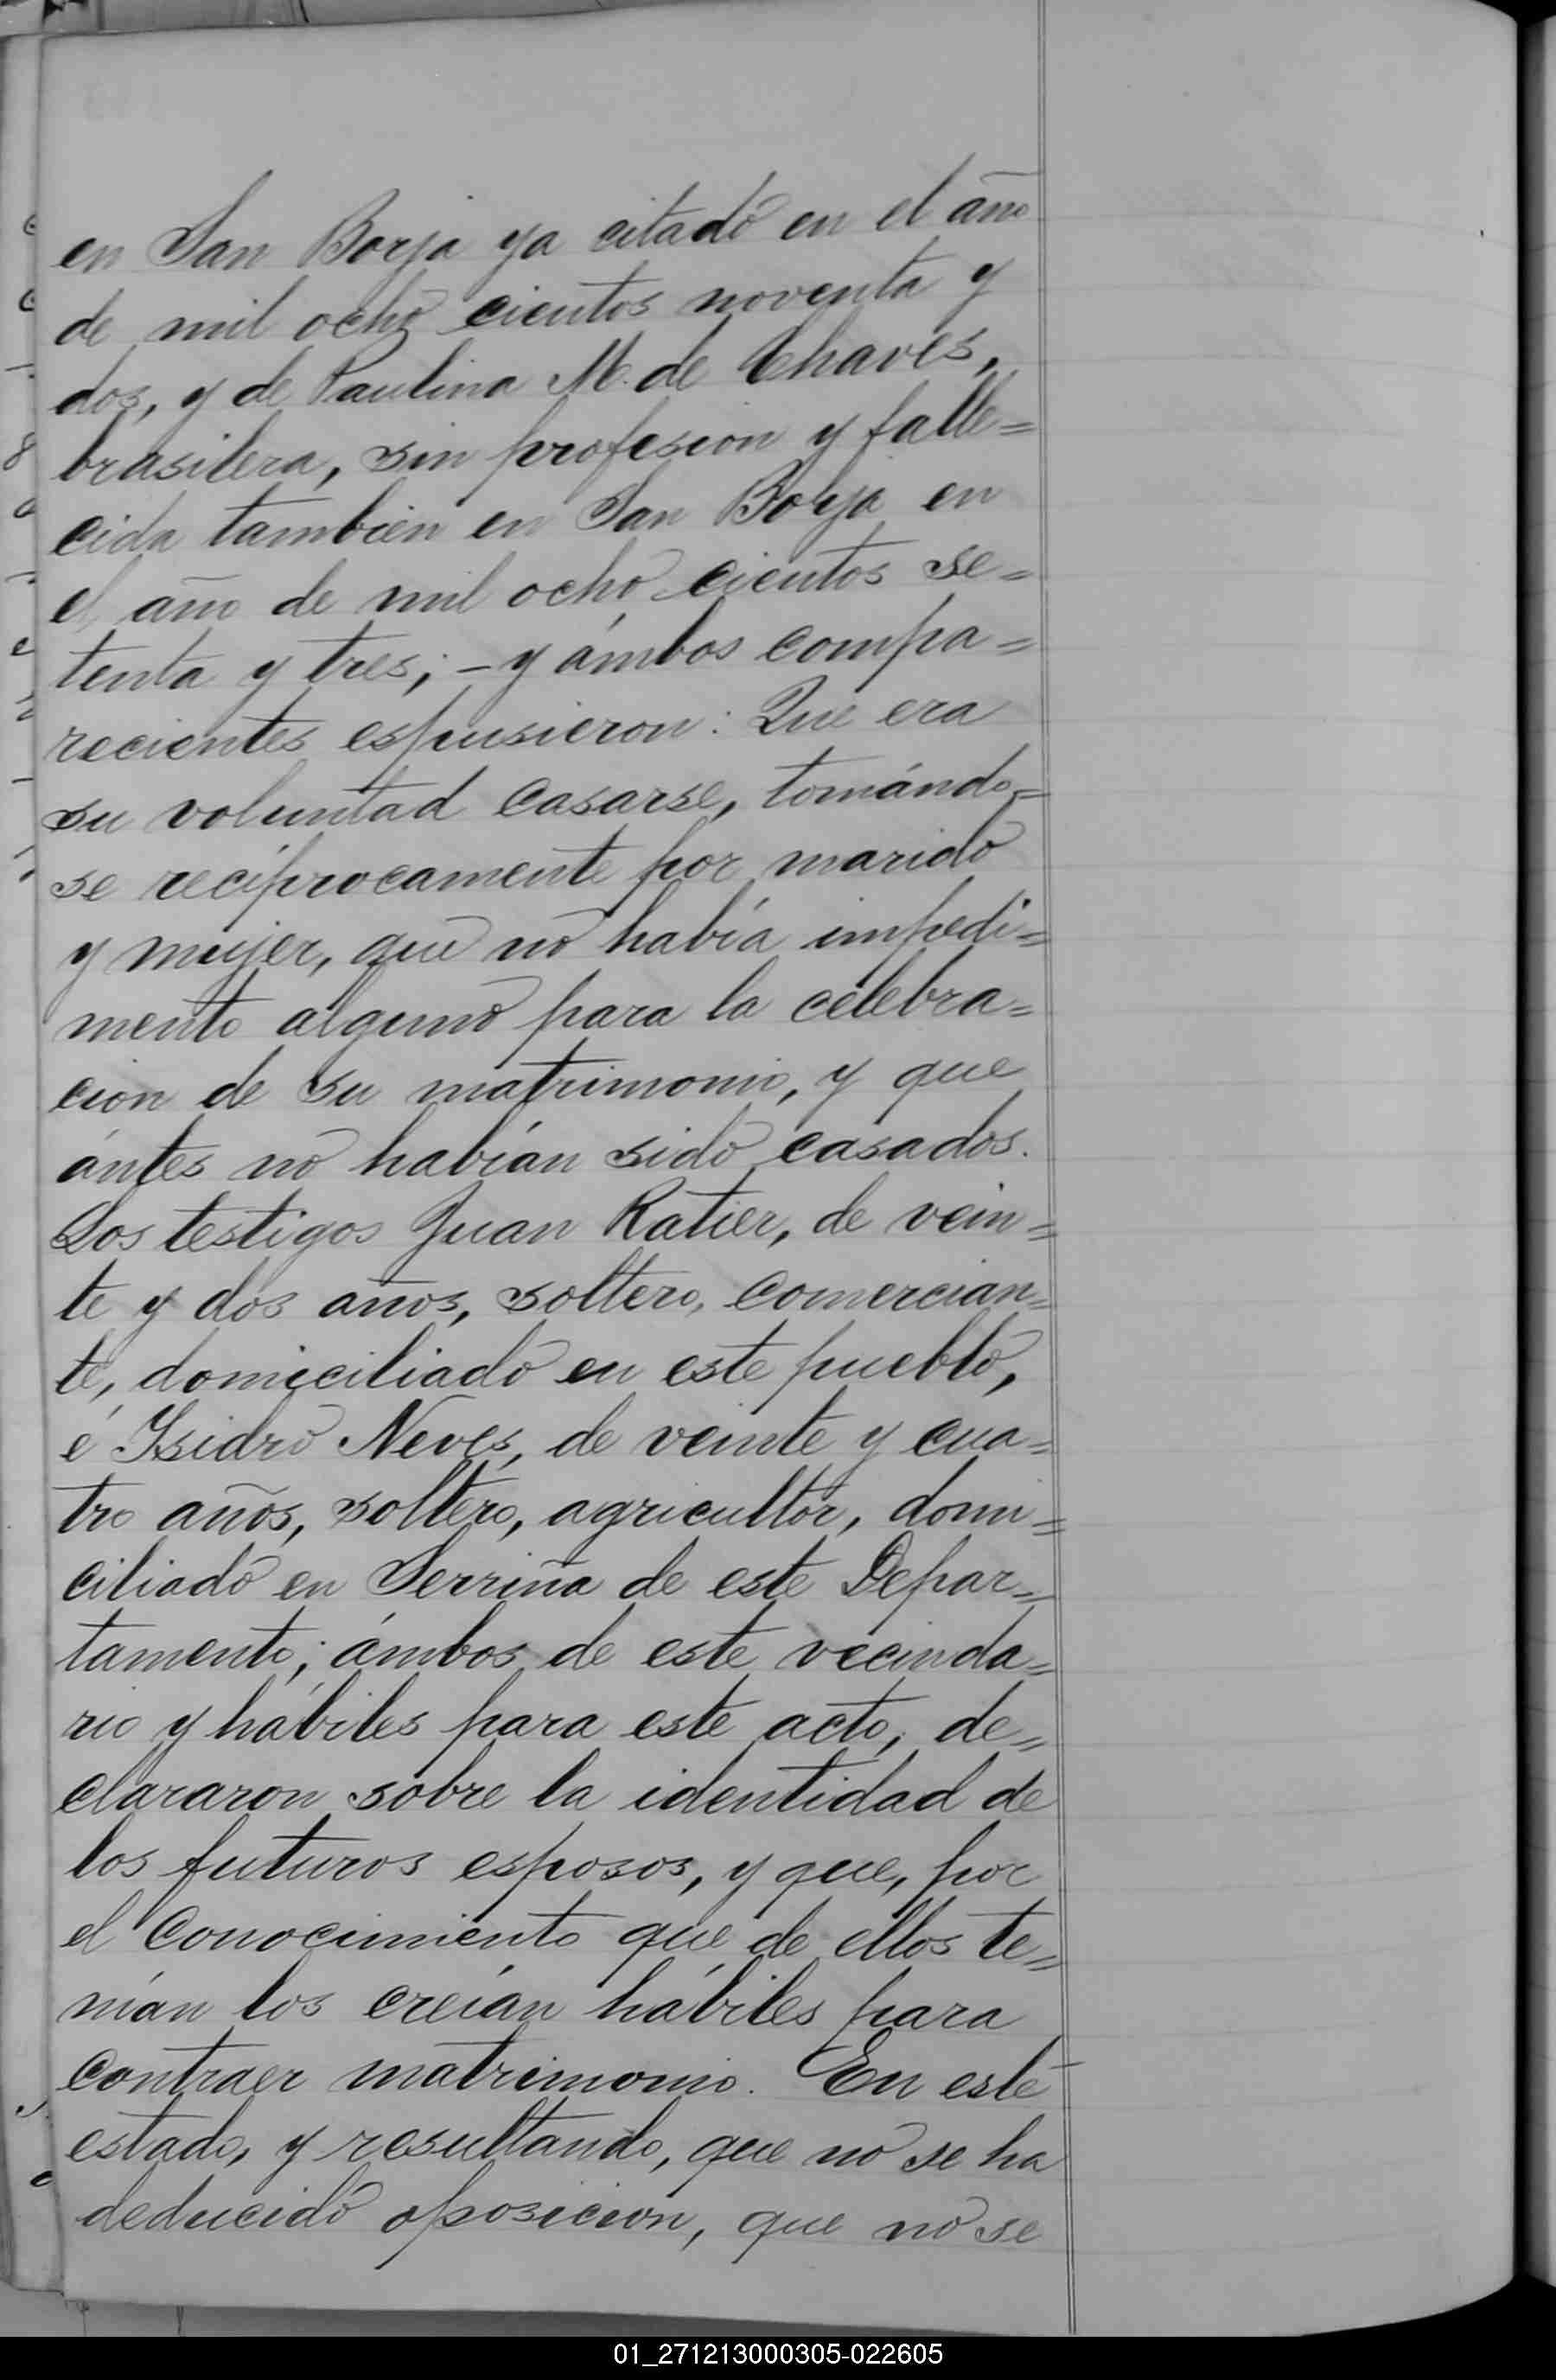 en San Borja ya citado en el año
de mil ocho cientos noventa y
dos, y de Paulina M. de Chaves,
brasilera, sin profesion y falle=
cida tambien en San Borja en
el año de mil ocho cientos se=
tenta y tres; – y ámbos compa=
recientes espusieron: Que era
su voluntad casarse, tomándo=
se recíprocamente por marido
y mujer, que no había impedi=
mento alguno para la celebra=
cion de su matrimonio, y que
ántes no habían sido casados.
Los testigos Juan Ratier, de vein=
te y dos años, soltero, comercian=
te, domiciliado en este pueblo,
é Isidro Neves, de veinte y cua=
tro años, soltero, agricultor, domi=
ciliado en Serriña de este Depar=
tamento; ámbos de este vecinda=
rio y hábiles para este acto, de=
clararon sobre la identidad de
los futuros esposos, y que, por
el conocimiento que de ellos te=
nían los creían hábiles para
contraer matrimonio. En este
estado, y resultando, que no se ha
deducido oposicion, que no se
01_271213000305-022605